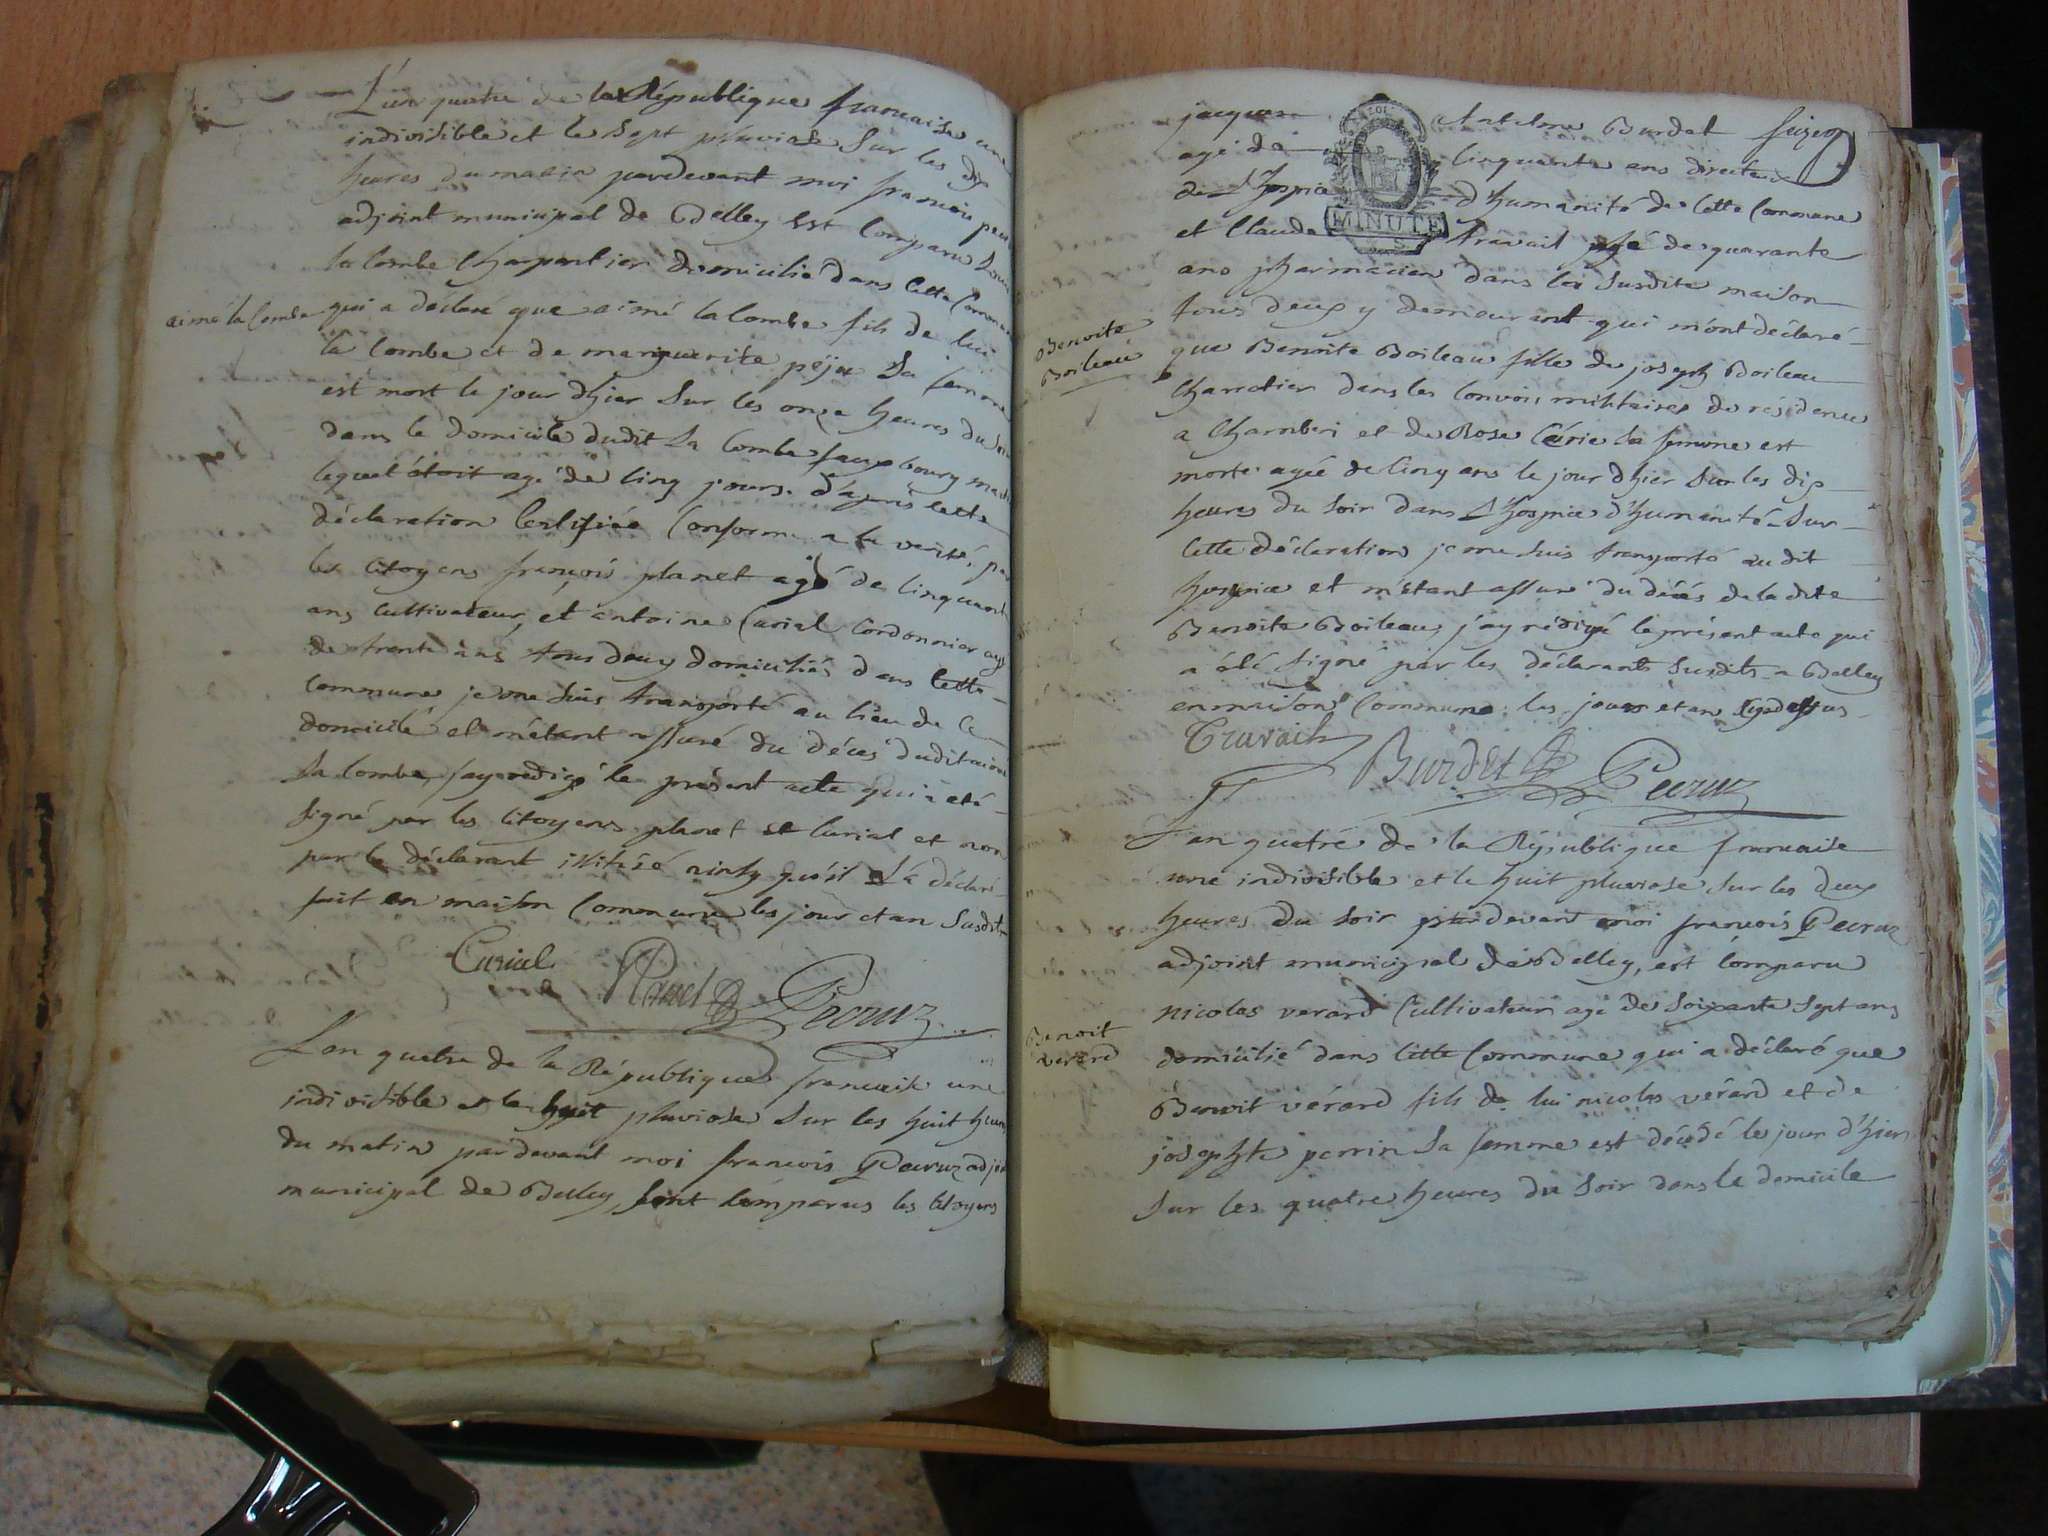 L'an quatre de la République francaise une
indivisible et le sept pluviose sur les dix
heures du matin pardevant moi francois
adjoint municipal de Belley est comparu
la Combe Charpentier domicilié dans cette Commune
aimé la Combe
qui a déclaré que aimé la Combe fils de lui
la Combe et de marguerite péju sa femme
est mort le jour d'hier sur les onze heures du soir
dans le domicile dudit la Combe fauxbourg
lequel étoit agé de cinq jours. d'après cette
déclaration certifiée conforme a la verité, par
les citoyens françois planet agé de cinquante
ans cultivateur, et antoine Curial Cordonnier agé
de trente ans tous deux domiciliés dans cette
commune je me suis transporté au lieu de ce
domicile et m'étant assuré du décés dudit aimé
la Combe, j'ay redigé le présent acte qui a eté
signé par les citoyens planet et Curial et non
par le déclarant illitéré ainsy qu'il l'a déclaré
fait en maison Commune les jour et an susdits
Curial Planet Pecruz
L'an quatre de la République francaise une
indivisible et le huit pluviose sur les huit heures
du matin pardevant moi francois Pecruz adjoint
municipal de Belley, sont comparus les citoyens
jacques Antelme Burdet
agé de cinquante ans directeur
de l'hospice d'humanité de cette Commune
MINUTE
et Claude Travail agé de quarante
ans pharmacien dans la susdite maison
tous deux y demeurant qui m'ont déclaré
Benoite
Boileau
que Benoite Boileau fille de joseph Boileau
Charretier dans les convois militaires de résidence
a Chamberi et de Rose Cérie sa femme est
morte agée de cinq ans le jour d'hier sur les dix
heures du soir dans l'hospice d'humanité. Sur
cette déclaration je me suis transporté au dit
hospice et m'étant assuré du décés de la dite
Benoite Boileau, j'ay rédigé le présent acte qui
a été signé par les déclarants susdits a Belley
en maison Commune les jour et an cy dessus
Travail Burdet Pecruz
L'an quatre de la République francaise
une indivisible et le huit pluviose sur les deux
heures du soir pardevant moi francois Pecruz
adjoint municipal de Belley, est comparu
nicolas verard Cultivateur agé de soixante sept ans
Benoit
verard
domicilié dans cette Commune qui a déclaré que
Benoit vérard fils de lui nicolas vérard et de
josephte perrin sa femme est décédé le jour d'hier
sur les quatre heures du soir dans le domicile